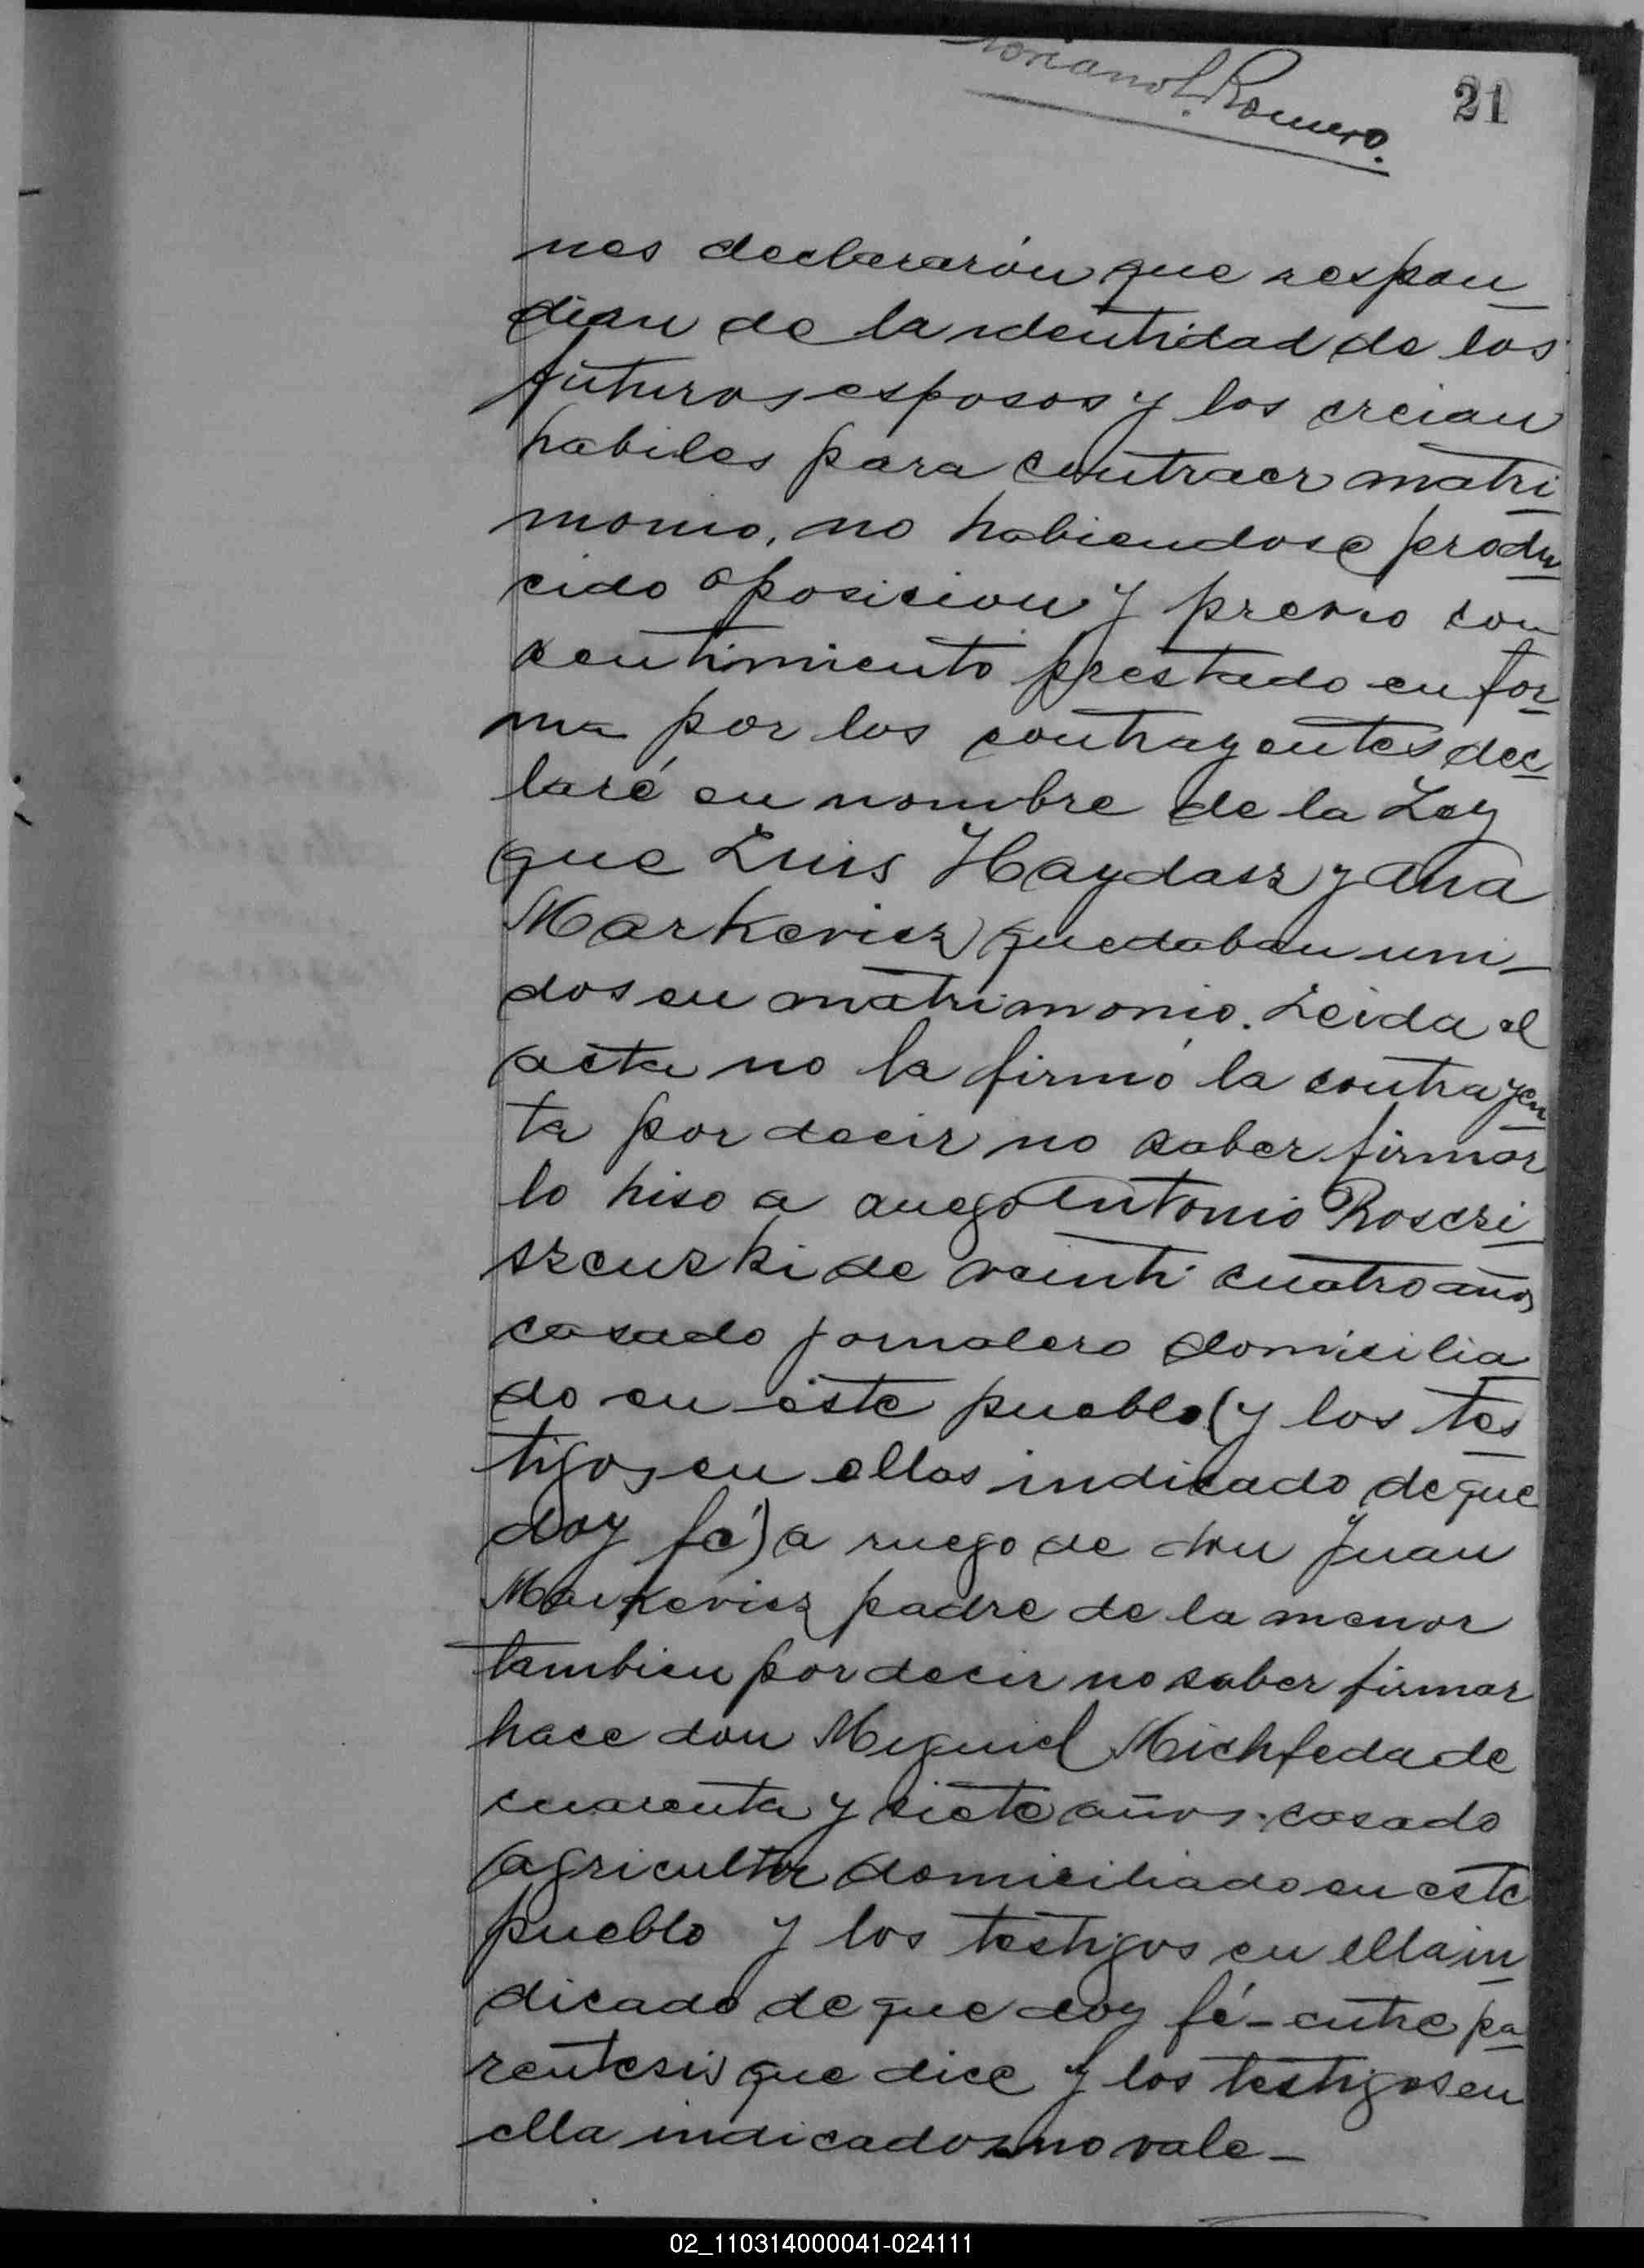 L. Romero.
21
nes declararón que respon
dian de la identidad de los
futuros esposos y los creian
habiles para contraer matri
monio, no habiendose produ
cido oposicion y previo con
sentimiento prestado en for
ma por los contrayentes dec
laré en nombre de la Ley
que Luis Haydasz y Ana
Markevicz quedaban uni
dos en matrimonio. Leida el
acta no la firmó la contrayen
ta por decir no saber firmar
lo hiso a ruego Antonio Roscri
szcuzki de veinti cuatro años
casado jornalero domicilia
do en este pueblo (y los tes
tigos en ellas indicado de que
doy fé) a ruego de don Juan
Markevicz padre de la menor
tambien por decir no saber firmar
hace don Miguel Michfeda de
cuarenta y siete años casado
agricultor domiciliado en este
pueblo y los testigos en ella in
dicado de que doy fé - entre pa
rentesis que dice y los testigos en
ella indicados no vale -
02_110314000041-024111